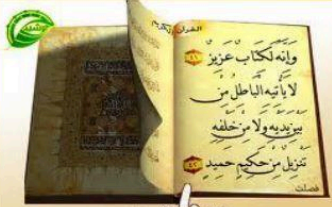 القرآن الكريم
وإنه لكتاب عزيز ٤١
لا يأتيه الباطل من
بين يديه ولا من خلفه
تنزيل من حكيم حميد ٤٢
فصلت